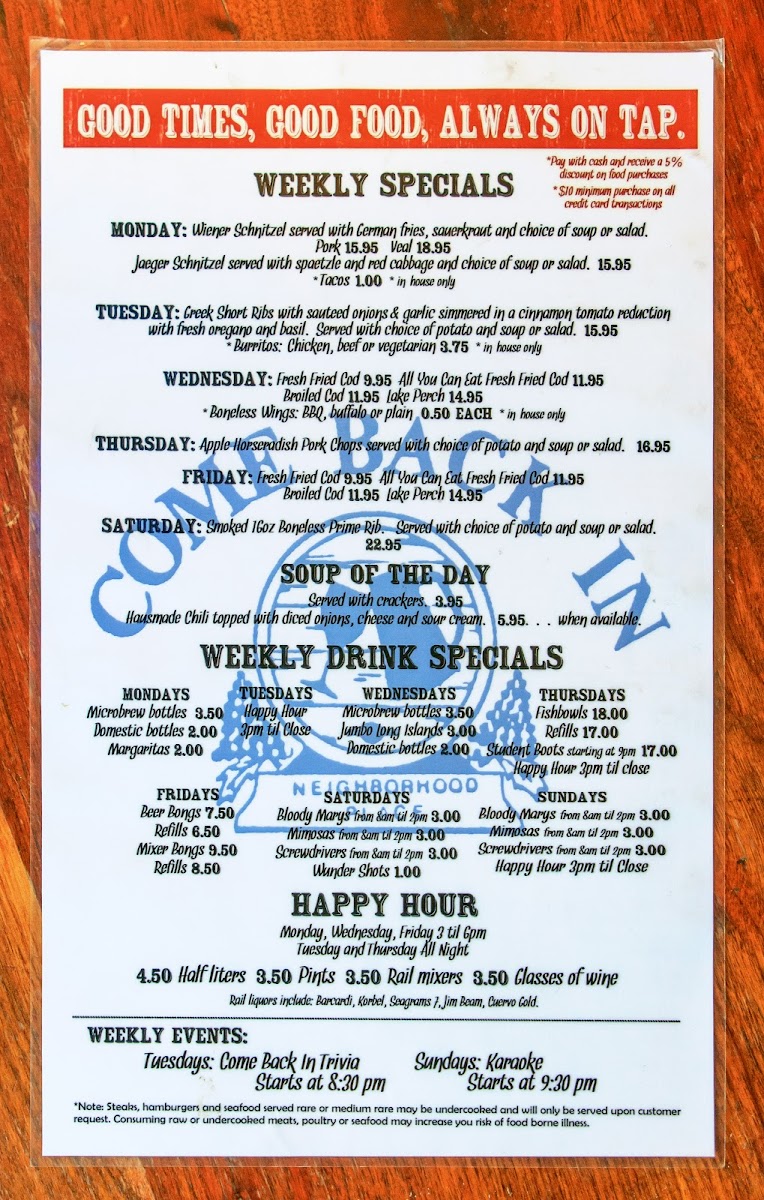 GOOD TIMES, GOOD FOOD, ALWAYS ON TAP.
*Pay with cash and receive a 5%
discount on food purchases
*$10 minimum purchase on all
credit card transactions
WEEKLY SPECIALS
MONDAY: Wiener Schnitzel served with German fries, sauerkraut and choice of soup or salad.
Pork 15.95 Veal 18.95
Jaeger Schnitzel served with spaetzle and red cabbage and choice of soup or salad. 15.95
*Tacos 1.00 * in house only
TUESDAY: Greek Short Ribs with sauteed onions & garlic simmered in a cinnamon tomato reduction
with fresh oregano and basil. Served with choice of potato and soup or salad. 15.95
*Burritos: Chicken, beef or vegetarian 3.75 * in house only
WEDNESDAY: Fresh Fried Cod 9.95 All You Can Eat Fresh Fried Cod 11.95
Broiled Cod 11.95 Lake Perch 14.95
*Boneless Wings: BBQ, buffalo or plain 0.50 EACH * in house only
THURSDAY: Apple Horseradish Pork Chops served with choice of potato and soup or salad. 16.95
FRIDAY: Fresh Fried Cod 9.95 All You Can Eat Fresh Fried Cod 11.95
Broiled Cod 11.95 Lake Perch 14.95
SATURDAY: Smoked 16oz Boneless Prime Rib. Served with choice of potato and soup or salad.
22.95
COME BACK IN
SOUP OF THE DAY
Served with crackers. 3.95
Hausmade Chili topped with diced onions, cheese and sour cream. 5.95. . . when available.
WEEKLY DRINK SPECIALS
MONDAYS
Microbrew bottles 3.50
Domestic bottles 2.00
Margaritas 2.00
TUESDAYS
Happy Hour
3pm til Close
WEDNESDAYS
Microbrew bottles 3.50
Jumbo Long Islands 3.00
Domestic bottles 2.00
THURSDAYS
Fishbowls 18.00
Refills 17.00
Student Boots starting at 9pm 17.00
Happy Hour 3pm til close
NEIGHBORHOOD
PLACE
FRIDAYS
Beer Bongs 7.50
Refills 6.50
Mixer Bongs 9.50
Refills 8.50
SATURDAYS
Bloody Marys from 8am til 2pm 3.00
Mimosas from 8am til 2pm 3.00
Screwdrivers from 8am til 2pm 3.00
Wunder Shots 1.00
SUNDAYS
Bloody Marys from 8am til 2pm 3.00
Mimosas from 8am til 2pm 3.00
Screwdrivers from 8am til 2pm 3.00
Happy Hour 3pm til Close
HAPPY HOUR
Monday, Wednesday, Friday 3 til 6pm
Tuesday and Thursday All Night
4.50 Half liters 3.50 Pints 3.50 Rail mixers 3.50 Glasses of wine
Rail liquors include: Barcardi, Korbel, Seagrams 7, Jim Beam, Cuervo Gold.
WEEKLY EVENTS:
Tuesdays: Come Back In Trivia
Starts at 8:30 pm
Sundays: Karaoke
Starts at 9:30 pm
*Note: Steaks, hamburgers and seafood served rare or medium rare may be undercooked and will only be served upon customer
request. Consuming raw or undercooked meats, poultry or seafood may increase you risk of food borne illness.